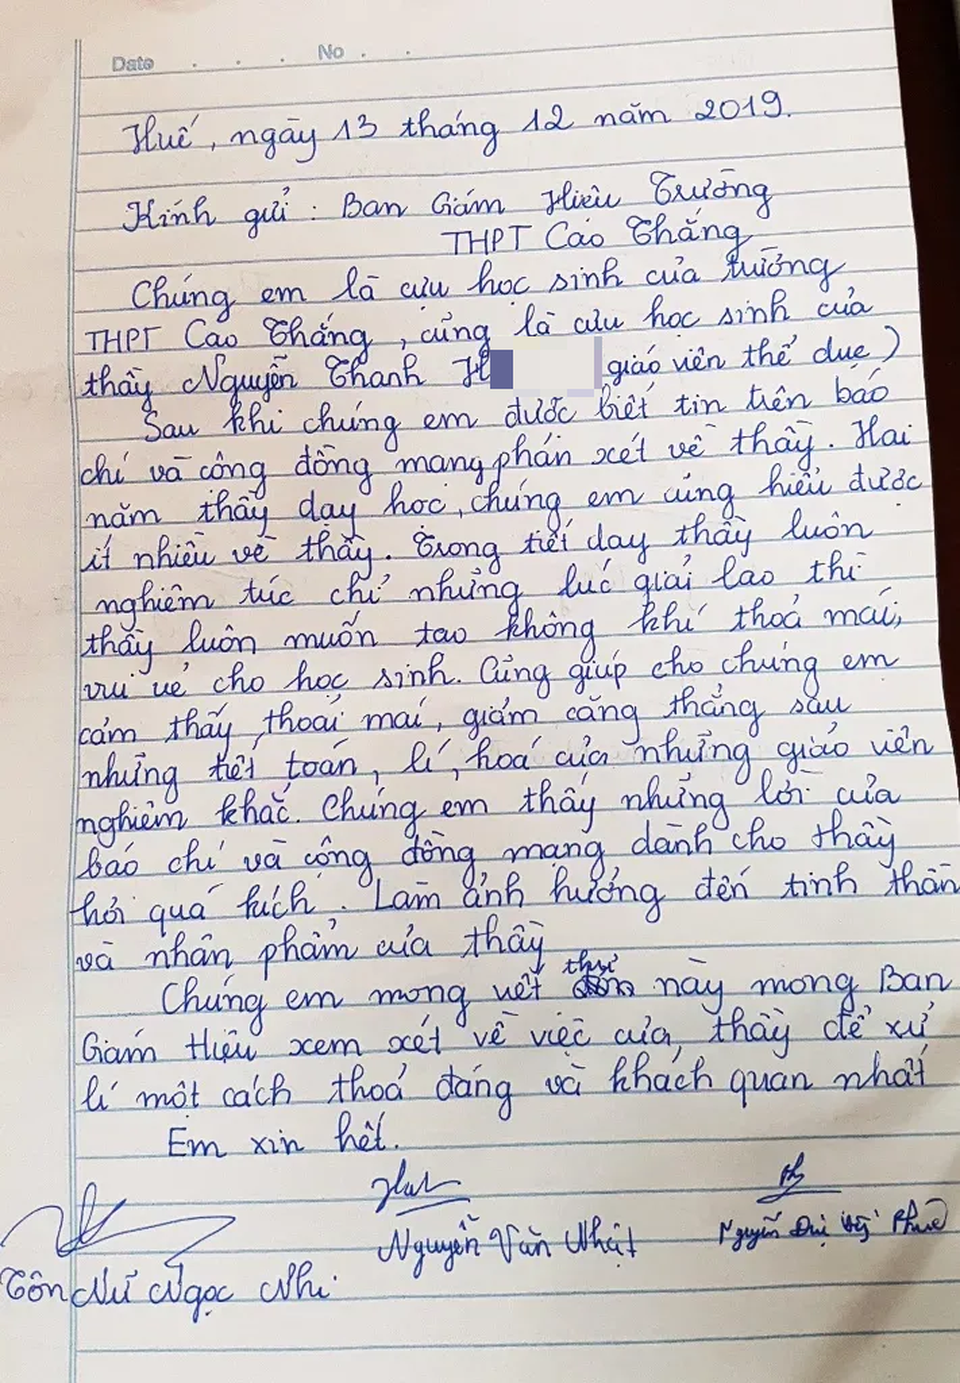 Date . . . No . .
Huế, ngày 13 tháng 12 năm 2019.
Kính gửi : Ban Giám Hiệu Trường
THPT Cao Thắng
Chúng em là cựu học sinh của trường
THPT Cao Thắng, củng là cựu học sinh của
thầy Nguyễn Thanh H giáo viên thể dục)
Sau khi chúng em được biết tin trên báo
chí và công đồng mang phán xét về thầy. Hai
năm thầy dạy học, chúng em củng hiểu được
ít nhiều về thầy. Trong tiết dạy thầy luôn
nghiêm túc chỉ những lúc giải lao thì
thầy luôn muốn tạo không khí thoả mái,
vui vẻ cho học sinh. Củng giúp cho chúng em
cảm thấy thoải mái, giảm căng thẳng sau
những tiết toán, lí, hoá của những giáo viên
nghiêm khắc. Chúng em thấy những lời của
báo chí và cộng đồng mạng dành cho thầy
hơi quá kích. Làm ảnh hưởng đến tinh thần
và nhân phẩm của thầy
Chúng em mong viết thư này mong Ban
Giám Hiệu xem xét về việc của thầy để xử
lí một cách thoả đáng và khách quan nhất
Em xin hết.
Nguyễn Văn Nhật
Nguyễn
Tôn Nữ Ngọc Nhi